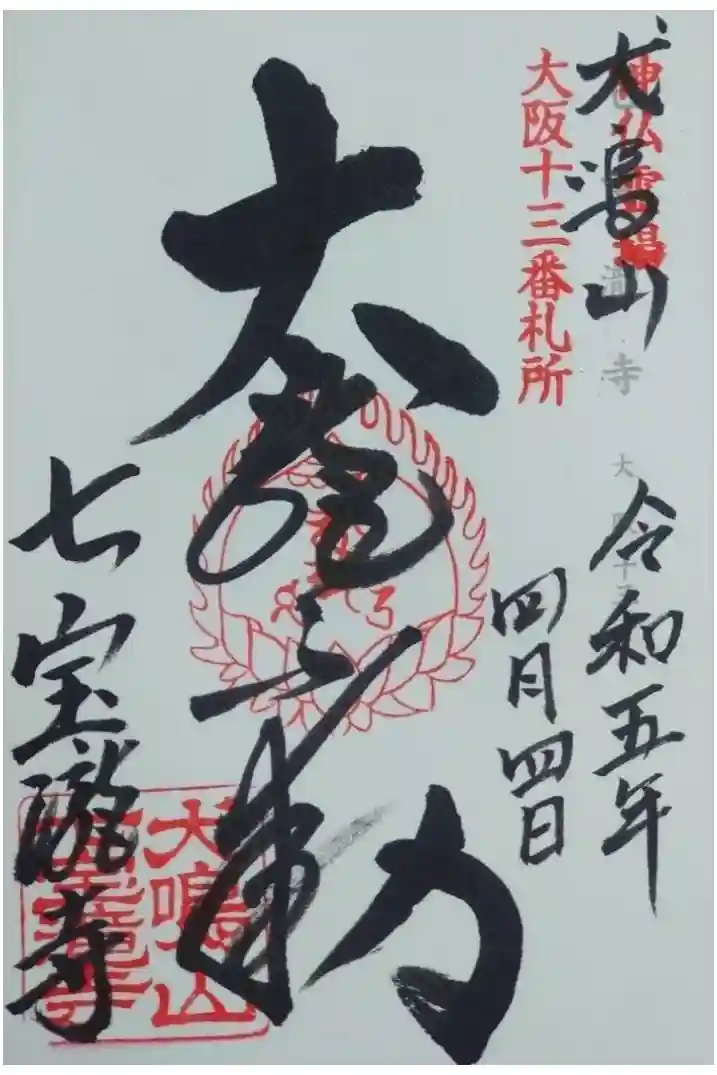 犬鳴山
神仏霊場
大阪十三番札所
令和五年
四月四日
大不動
七宝瀧寺
犬鳴山